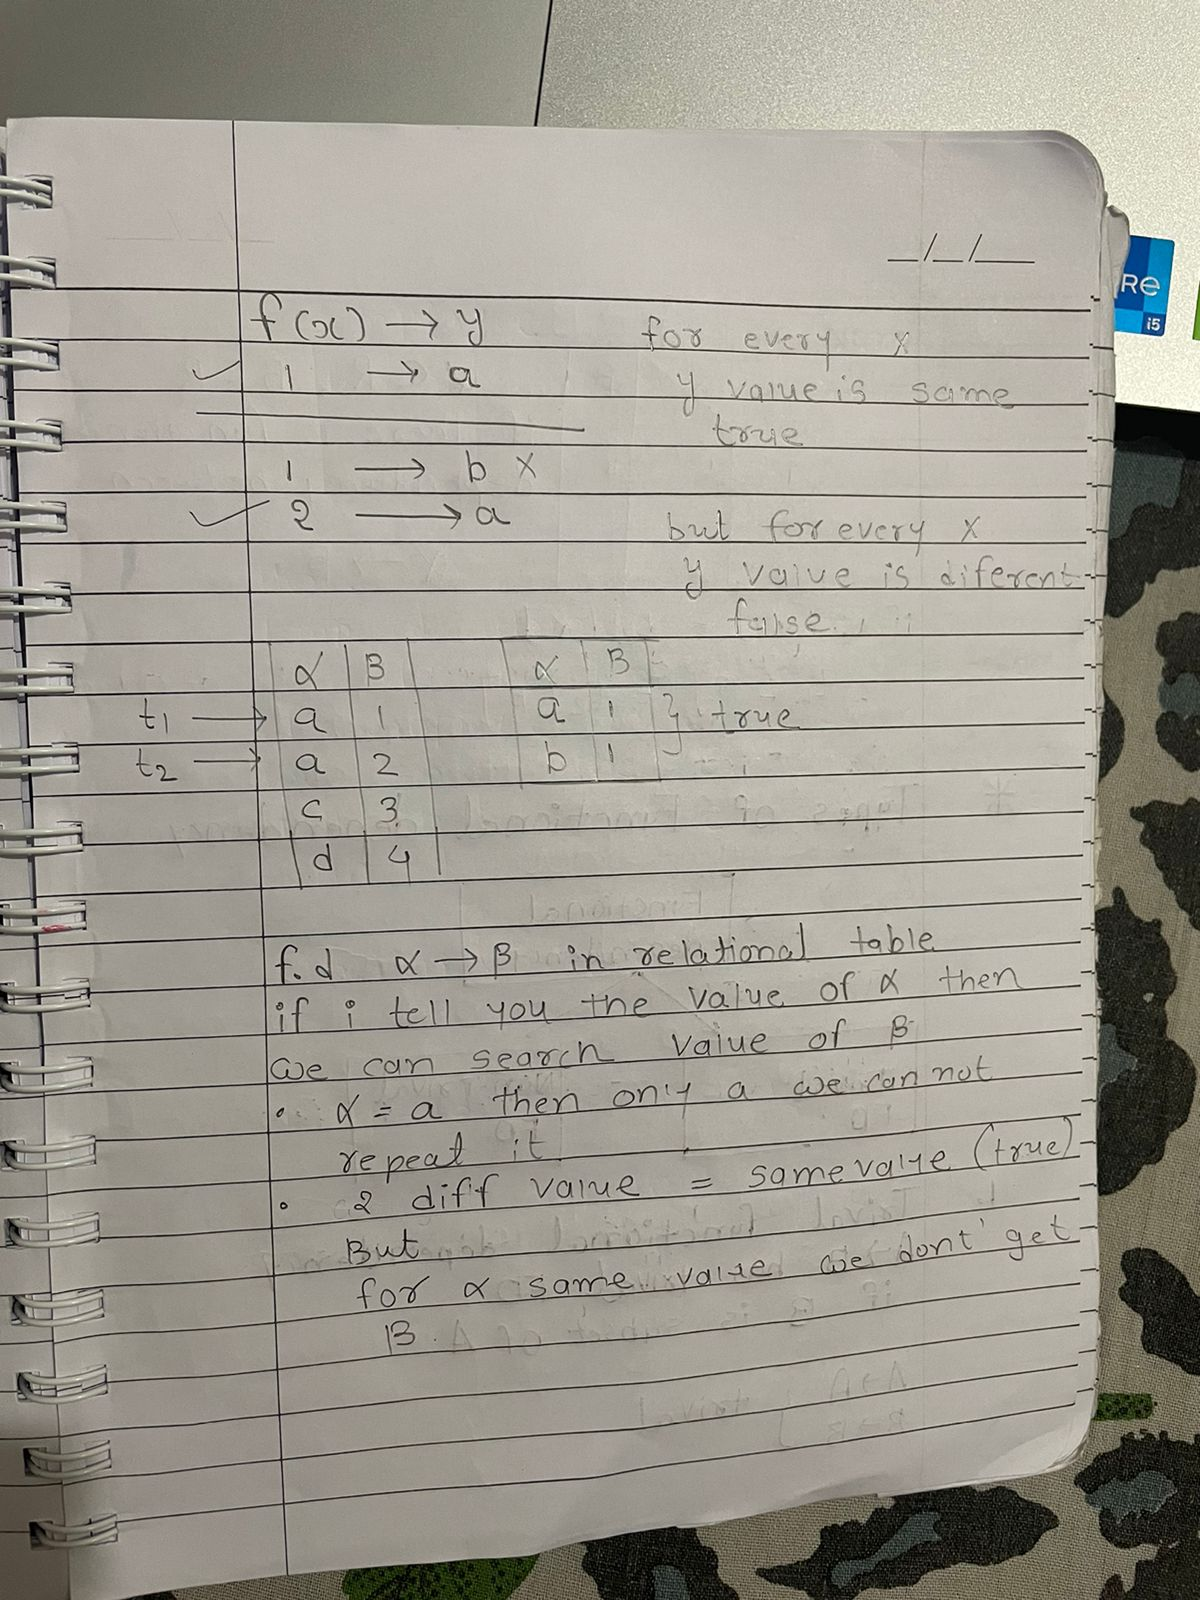 _/_/__
f(x) → y
for every x
✓ 1 → a
y value is same
true
1 → b x
✓ 2 → a
but for every x
y value is diferent
false
α | B
α | B
t1 → a | 1
a | 1 } true
t2 → a | 2
b | 1
c | 3
d | 4
f.d α → β in relational table
if i tell you the value of α then
we can search value of β
• α = a then only a we can not
repeat it
• 2 diff value = same value (true)
But
for α same value we dont' get
B.
Re
i5